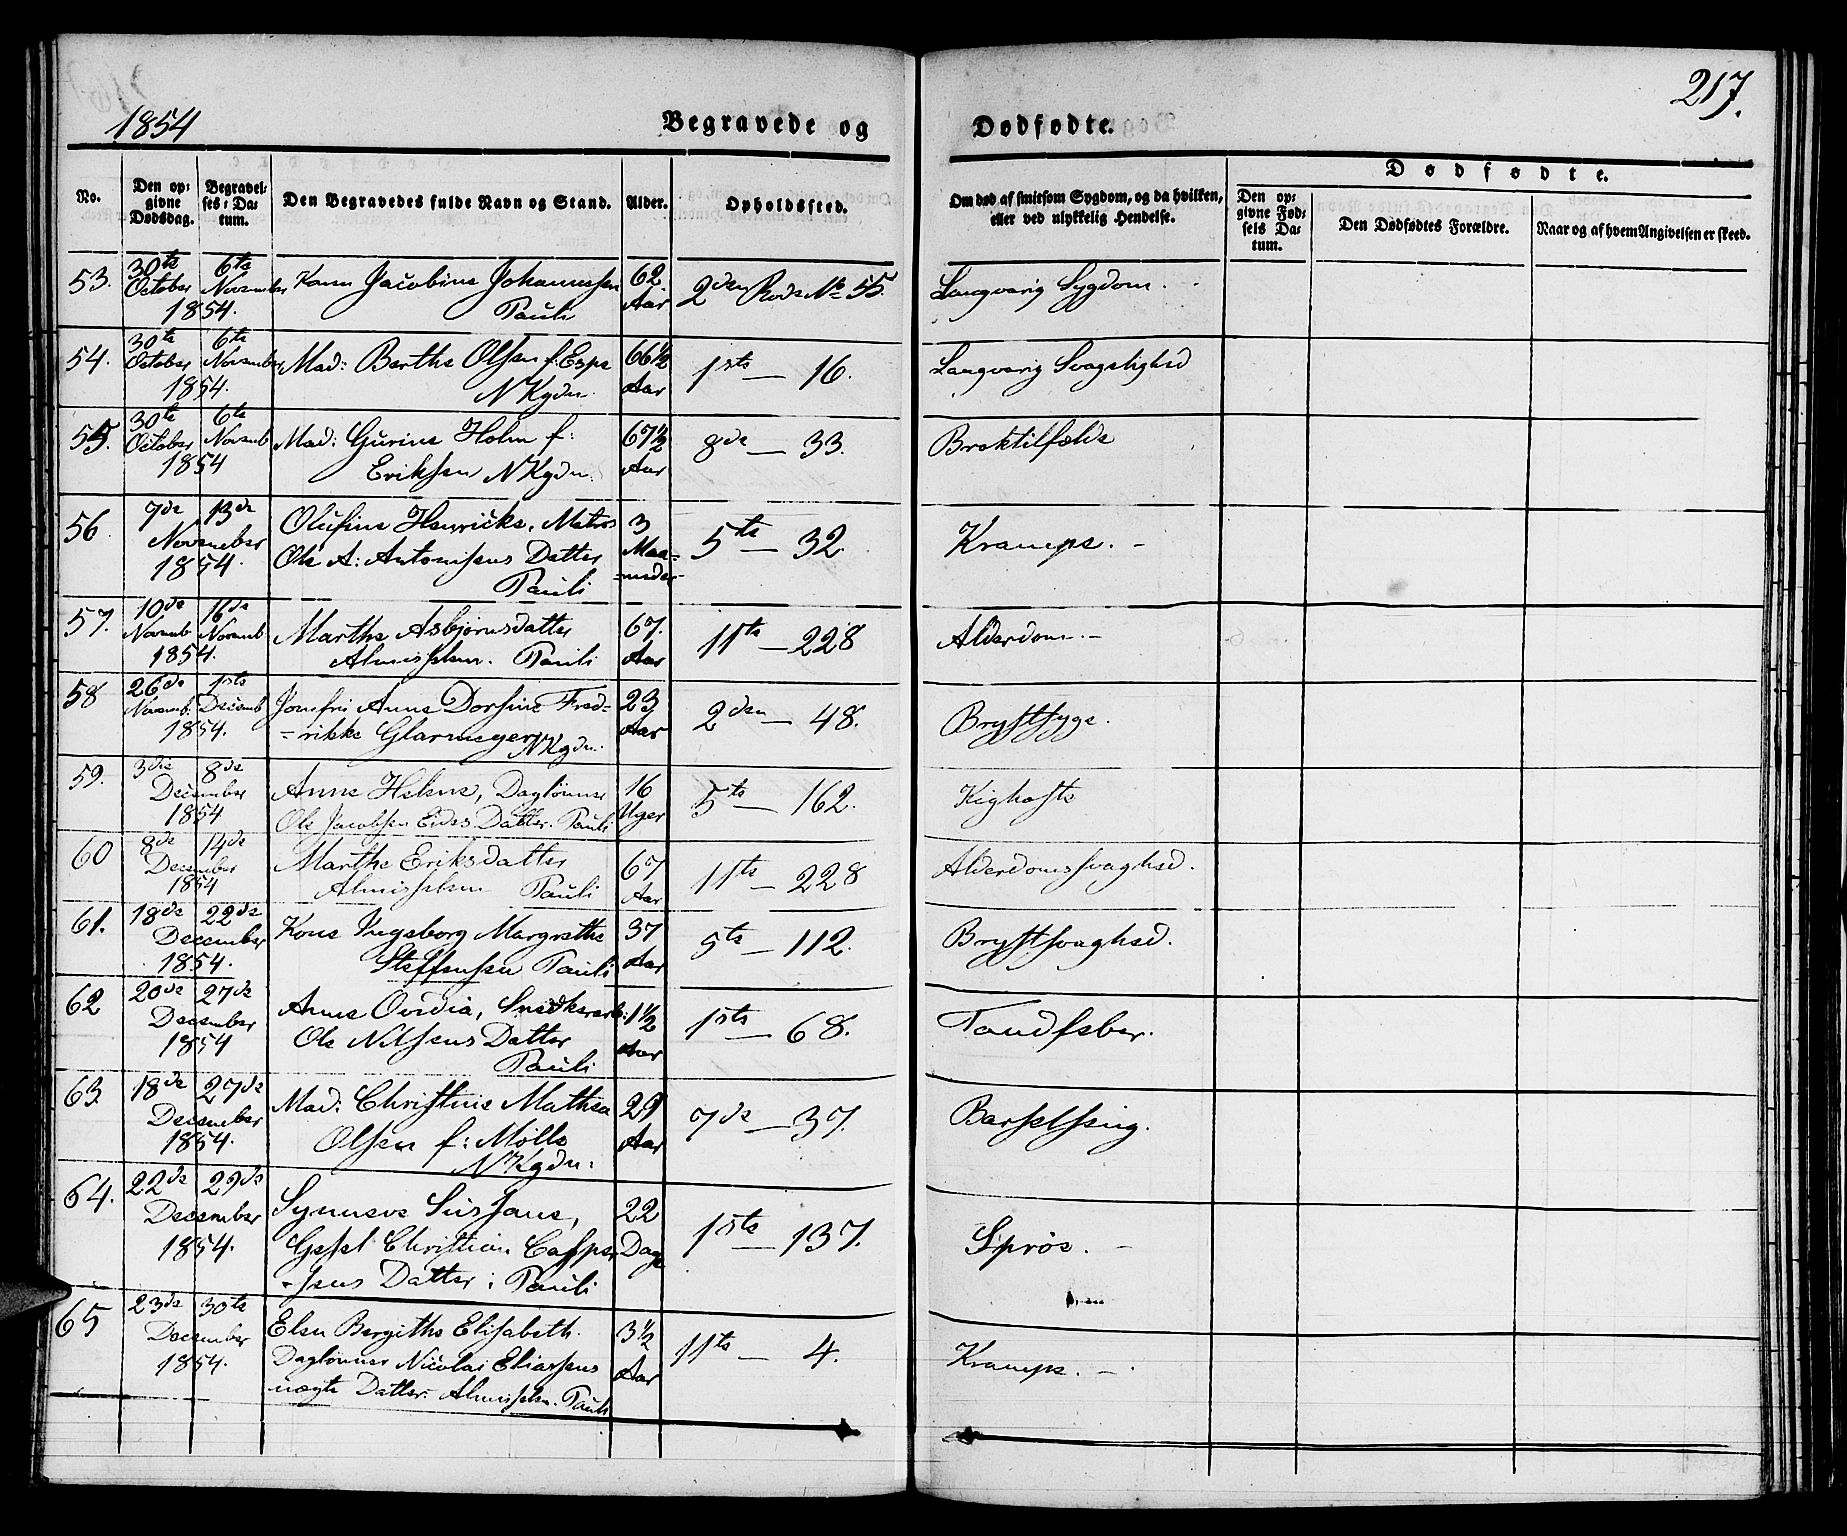 1854 Begravede og Dødfødte. 217.
Dødfødte.
No. Den opgivne Dødsdag. Begravelses-Datum. Den Begravedes fulde Navn og Stand. Alder. Opholdssted. Om død af smitsom Sygdom, og da hvilken, eller ved ulykkelig Hendelse. Den opgivne Fødsels Datum. Den Dødfødtes Forældre. Naar og af hvem Angivelsen er skeed.
53. 30te 6te Kone Jacobine Johannessen 62 2den Rode No 55. Langvarig Sygdom.
October November Pauli Aar
1854.
54. 30te 6te Mad: Berthe Olsen f: Espe 66½ 1ste — 16. Langvarig Svagelighed
October November NKgdn. Aar
1854.
55. 30te 6te Mad: Gurine Holm f: 67½ 8de — 33. Broktilfælde
October Novemb Eriksen NKgdn. Aar
1854
56. 7de 13de Olufine Henricke, Matros 3 5te — 32 Krampe. -
November Ole A: Antonisens Datter Maa-
1854. Pauli -neder-
57. 10de 16de Marthe Asbjørnsdatter 67. 11te — 228 Alderdom. -
Novemb Novemb Almisselem. Pauli Aar
1854.
58 26de 1ste Jomfru Anne Dorfine Fred= 23 2den — 48. Brystsyge.
Novemb. Decemb =rikke Glarmeyer NKgdn. Aar
1854.
59. 3die 8de Anne Helene, Daglønner 16 5te — 162. Kighoste
December Ole Jacobsen Eides Datter. Pauli Uger
1854
60 8de 14de Marthe Eriksdatter 67 11te — 228 Alderdomssvaghed.
December Almisselem Pauli Aar
1854
61. 18de 22de Kone Ingeborg Margrethe 37 5te — 112. Brystsvaghed.
December Steffensen Pauli Aar
1854.
62 20de 27de Anne Ovidia, Snedkerarb: 1½ 1ste — 68. Tandfeber.
December Ole Nilsens Datter Aar
1854 Pauli
63. 18de 27de Mad: Christine Mathea 29 7de — 37. Barselseng.
December Olsen f: Mølle Aar
1854. NKgdn:
64. 22de 29de Synneve Sussane, 22 1ste — 137. Sprøe. -
December Gesel Christian Casper Dage
1854. -sens Datter; Pauli
65 23de 30te Elen Bergithe Elisabeth. 3½ 11te — 4. Krampe. -
December Daglønner Nicolai Eliassens Aar
1854. uægte Datter. Almisselem. Pauli